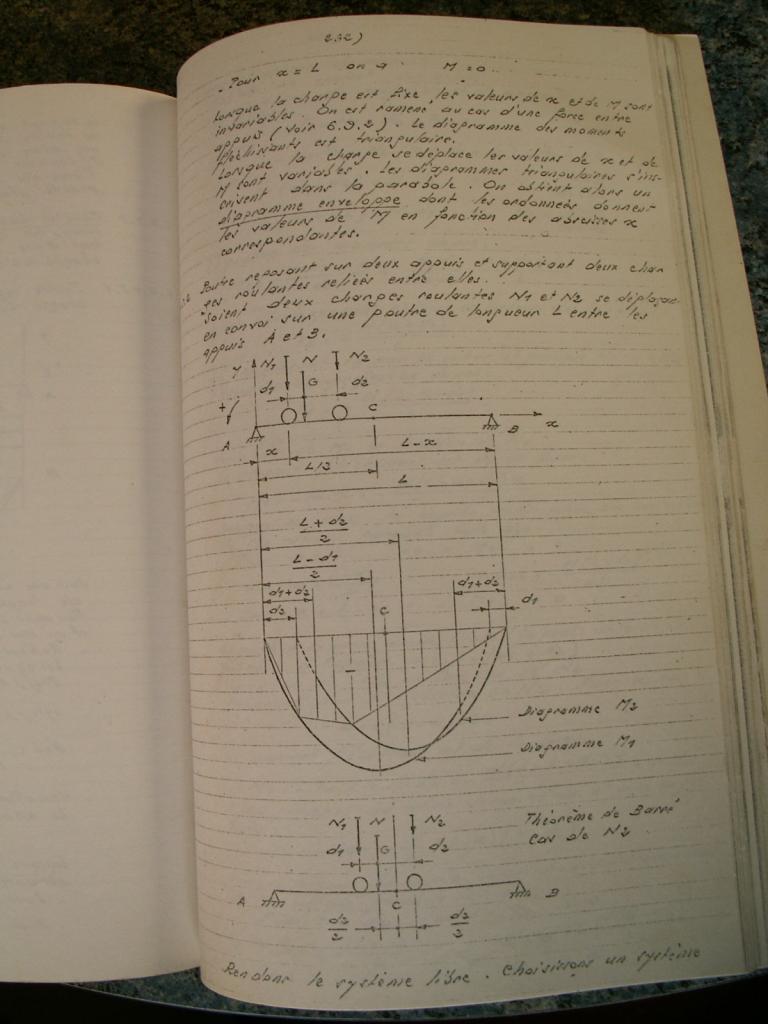 232)
- Pour x = L on a : M = 0.
Lorsque la charge est fixe, les valeurs de x et de M sont
invariables. On est ramené au cas d'une force entre
appuis (voir 6.9.2). Le diagramme des moments
fléchissants est triangulaire.
Lorsque la charge se déplace les valeurs de x et de
M sont variables. Les diagrammes triangulaires s'ins-
crivent dans la parabole. On obtient alors un
diagramme enveloppe dont les ordonnées donnent
les valeurs de M en fonction des abscisses x
correspondantes.
Poutre reposant sur deux appuis et supportant deux char
ges roulantes reliées entre elles.
Soient deux charges roulantes N1 et N2 se déplaçan
en convoi sur une poutre de longueur L entre les
appuis A et B.
Y N1 N N2
d1 G d2
+ C
A B x
x L-x
L/2
L
L + d2
2
L - d1
2
d1+d2 d1+d2
d2 C d1
-
Diagramme M2
Diagramme M1
N1 N N2 Théorème de Barré
Cas de N2
d1 G d2
A C B
d2 d2
2 2
Rendons le système libre. Choisissons un système